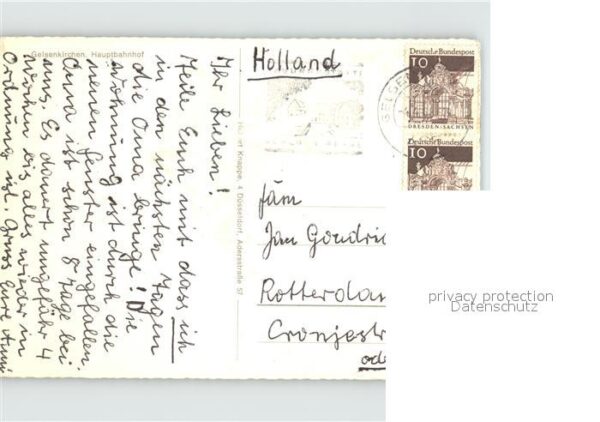 Gelsenkirchen, Hauptbahnhof
Ihr Lieben!
Teile Euch mit dass ich
in den nächsten Tagen
die Oma bringe! Die
Wohnung ist durch die
neuen Fenster eingefallen.
Oma ist schon 8 Tage bei
uns. Es dauert ungefähr 4
Wochen bis alles wieder in
Ordnung ist. Gruss Eure Anni
Knappe, 4 Düsseldorf, Adersstraße 57
Holland
Deutsche Bundespost
10
DRESDEN-SACHSEN
Deutsche Bundespost
10
GELSE
Fam
Jan Goudri
Rotterda
Cronjestr
privacy protection
Datenschutz